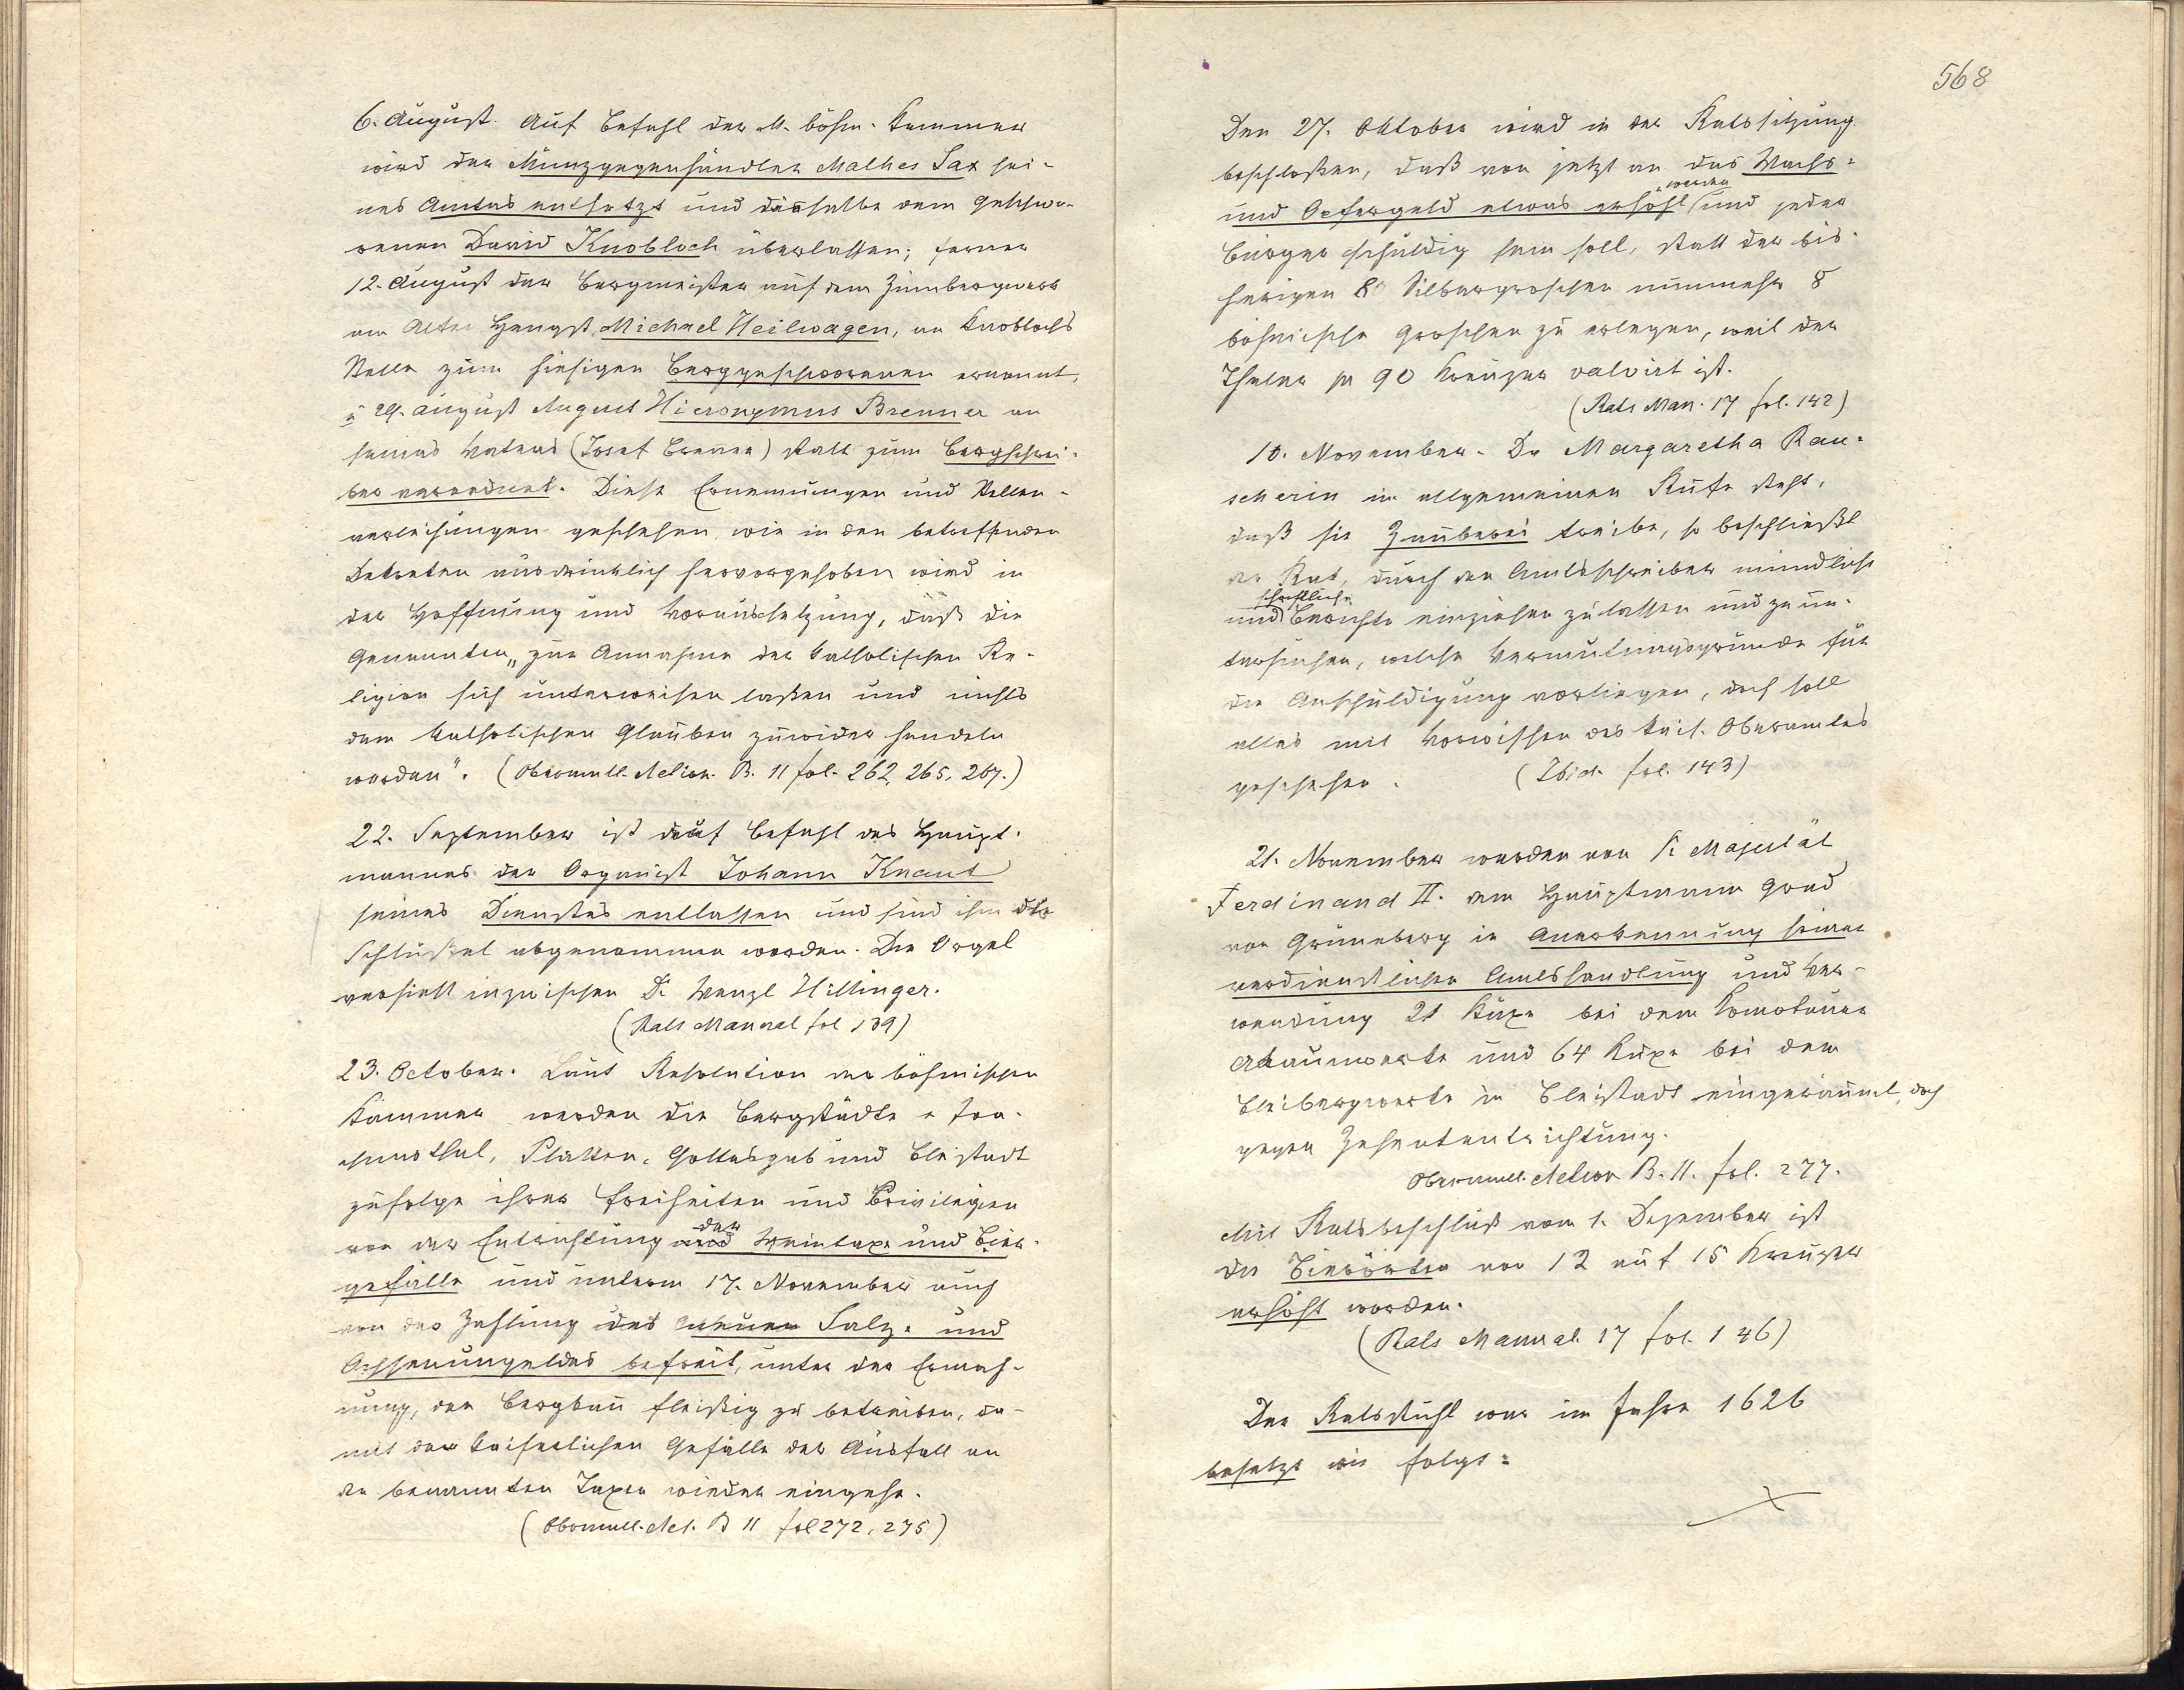 6. August. Auf Befehl der k. böhm. Kammer
wird der Münzgegenhändler Mathes Sax sei-
nes Amtes entsetzt und dasselbe dem Geschwo-
renen David Knobloch überlassen; ferner
12. August der Bergmeister auf dem Zinnbergwerk
am Alten Hengst, Michael Heilwagen, an Knoblochs
Stelle zum hiesigen Berggeschworenen ernannt,
u 29. August August Hieronymus Brenner an
seines Vaters (Josef Brenner) statt zum Bergschrei-
ber verordnet. Diese Ernennungen und Stellen-
verleihungen geschehen, wie in den betreffenden
Dekreten ausdrücklich hervorgehoben wird in
der Hoffnung und Voraussetzung, daß die
Genannten „zur Annahme der katholischen Re-
ligion sich unterweisen laßen und nichts
dem katholischen Glauben zuwider handeln
werden". (Oberamtl. B. 11 fol. 262, 265, 267.)
22. September ist auf Befehl des Haupt-
mannes der Organist Johann Knaut
seines Dienstes entlassen und sind ihm die
Schlüßel abgenommen worden. Die Orgel
versieht inzwischen D. Wenzl Hillinger.
(Rats Manual fol 139)
23. October. Laut Resolution der böhmischen
Kammer werden die Bergstädte Joa-
chimsthal, Platten, Gottesgab und Bleistadt
zufolge ihrer Freiheiten und Privilegien
der
von der Entrichtung Weintaxe und Bier-
gefälle und unterm 17. November auch
von der Zahlung des neuen Salz- und
befreit, unter der Ermah-
nung, den Bergbau fleißig zu betreiben, da-
mit der kaiserlichen Gefälle der Ausfall an
den benannten Taxen wieder eingehe.
(Oberamtl. Act. B 11 fol 272, 275)
568
Den 27. Oktober wird in der Ratssitzung
beschloßen, daß von jetzt an das Wachs-
werden
und Opfergeld etwas erhöht und jeder
Bürger schuldig sein soll, statt der bis-
herigen 8 Silbergroschen nunmehr 8
böhmische Groschen zu erlegen, weil der
Thaler pr 90 Kreuzer valvirt ist.
(Rats Man. 17 fol. 142)
10. November. Da Margaretha Rau-
scherin im allgemeinen Rufe steht,
daß sie Zauberei treibe, so beschließt
der Rat, durch den Amtsschreiber mündliche
schriftliche
und Berichte einziehen zu lassen und zu un-
tersuchen, welche Vermutungsgründe für
die Anschuldigung vorliegen, doch soll
alles mit Vorwissen des kais. Oberamtes
geschehen. (Ibid. fol. 143)
21. November werden von Sr Majestät
Ferdinand II. dem Hauptmann Grad
von Grüneberg in Anerkennung seiner
verdienstlichen Amtshandlung und Ver-
wendung 21 Kuxe bei dem Komotauer
Alaunwerke und 64 Kuxe bei dem
Bleibergwerke in Bleistadt eingeräumt, doch
gegen Zehententrichtung.
Oberamtl. B. 11. fol. 277.
Mit Ratsbeschluß vom 1. Dezember ist
die von 12 auf 15 Kreuzer
erhöht worden.
(Rats Manual 17 fol. 146)
Der Ratsstuhl war im Jahre 1626
besetzt wie folgt: